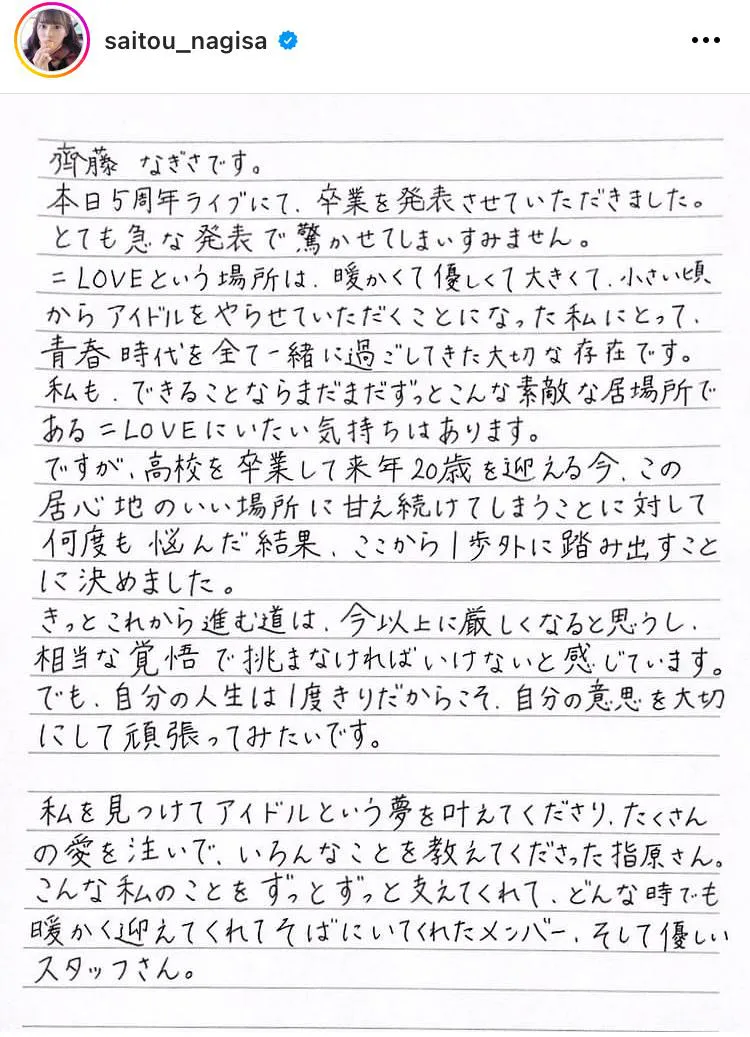 saitou_nagisa
齊藤 なぎさです。
本日5周年ライブにて、卒業を発表させていただきました。
とても急な発表で驚かせてしまいすみません。
=LOVEという場所は、暖かくて優しくて大きくて、小さい頃
からアイドルをやらせていただくことになった私にとって、
青春時代を全て一緒に過ごしてきた大切な存在です。
私も、できることならまだまだずっとこんな素敵な居場所で
ある=LOVEにいたい気持ちはあります。
ですが、高校を卒業して来年20歳を迎える今、この
居心地のいい場所に甘え続けてしまうことに対して
何度も悩んだ結果、ここから1歩外に踏み出すこと
に決めました。
きっとこれから進む道は、今以上に厳しくなると思うし、
相当な覚悟で挑まなければいけないと感じています。
でも、自分の人生は1度きりだからこそ、自分の意思を大切
にして頑張ってみたいです。
私を見つけてアイドルという夢を叶えてくださり、たくさん
の愛を注いで、いろんなことを教えてくださった指原さん。
こんな私のことをずっとずっと支えてくれて、どんな時でも
暖かく迎えてくれてそばにいてくれたメンバー、そして優しい
スタッフさん。